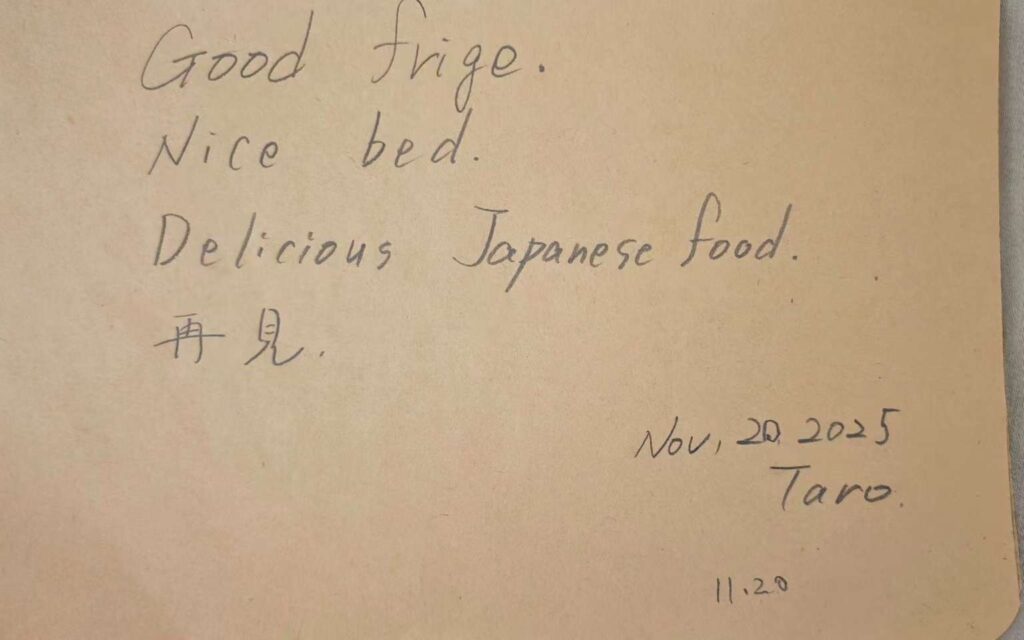 Good frige.
Nice bed.
Delicious Japanese food.
再見.
Nov, 20, 2025
Taro.
11.20